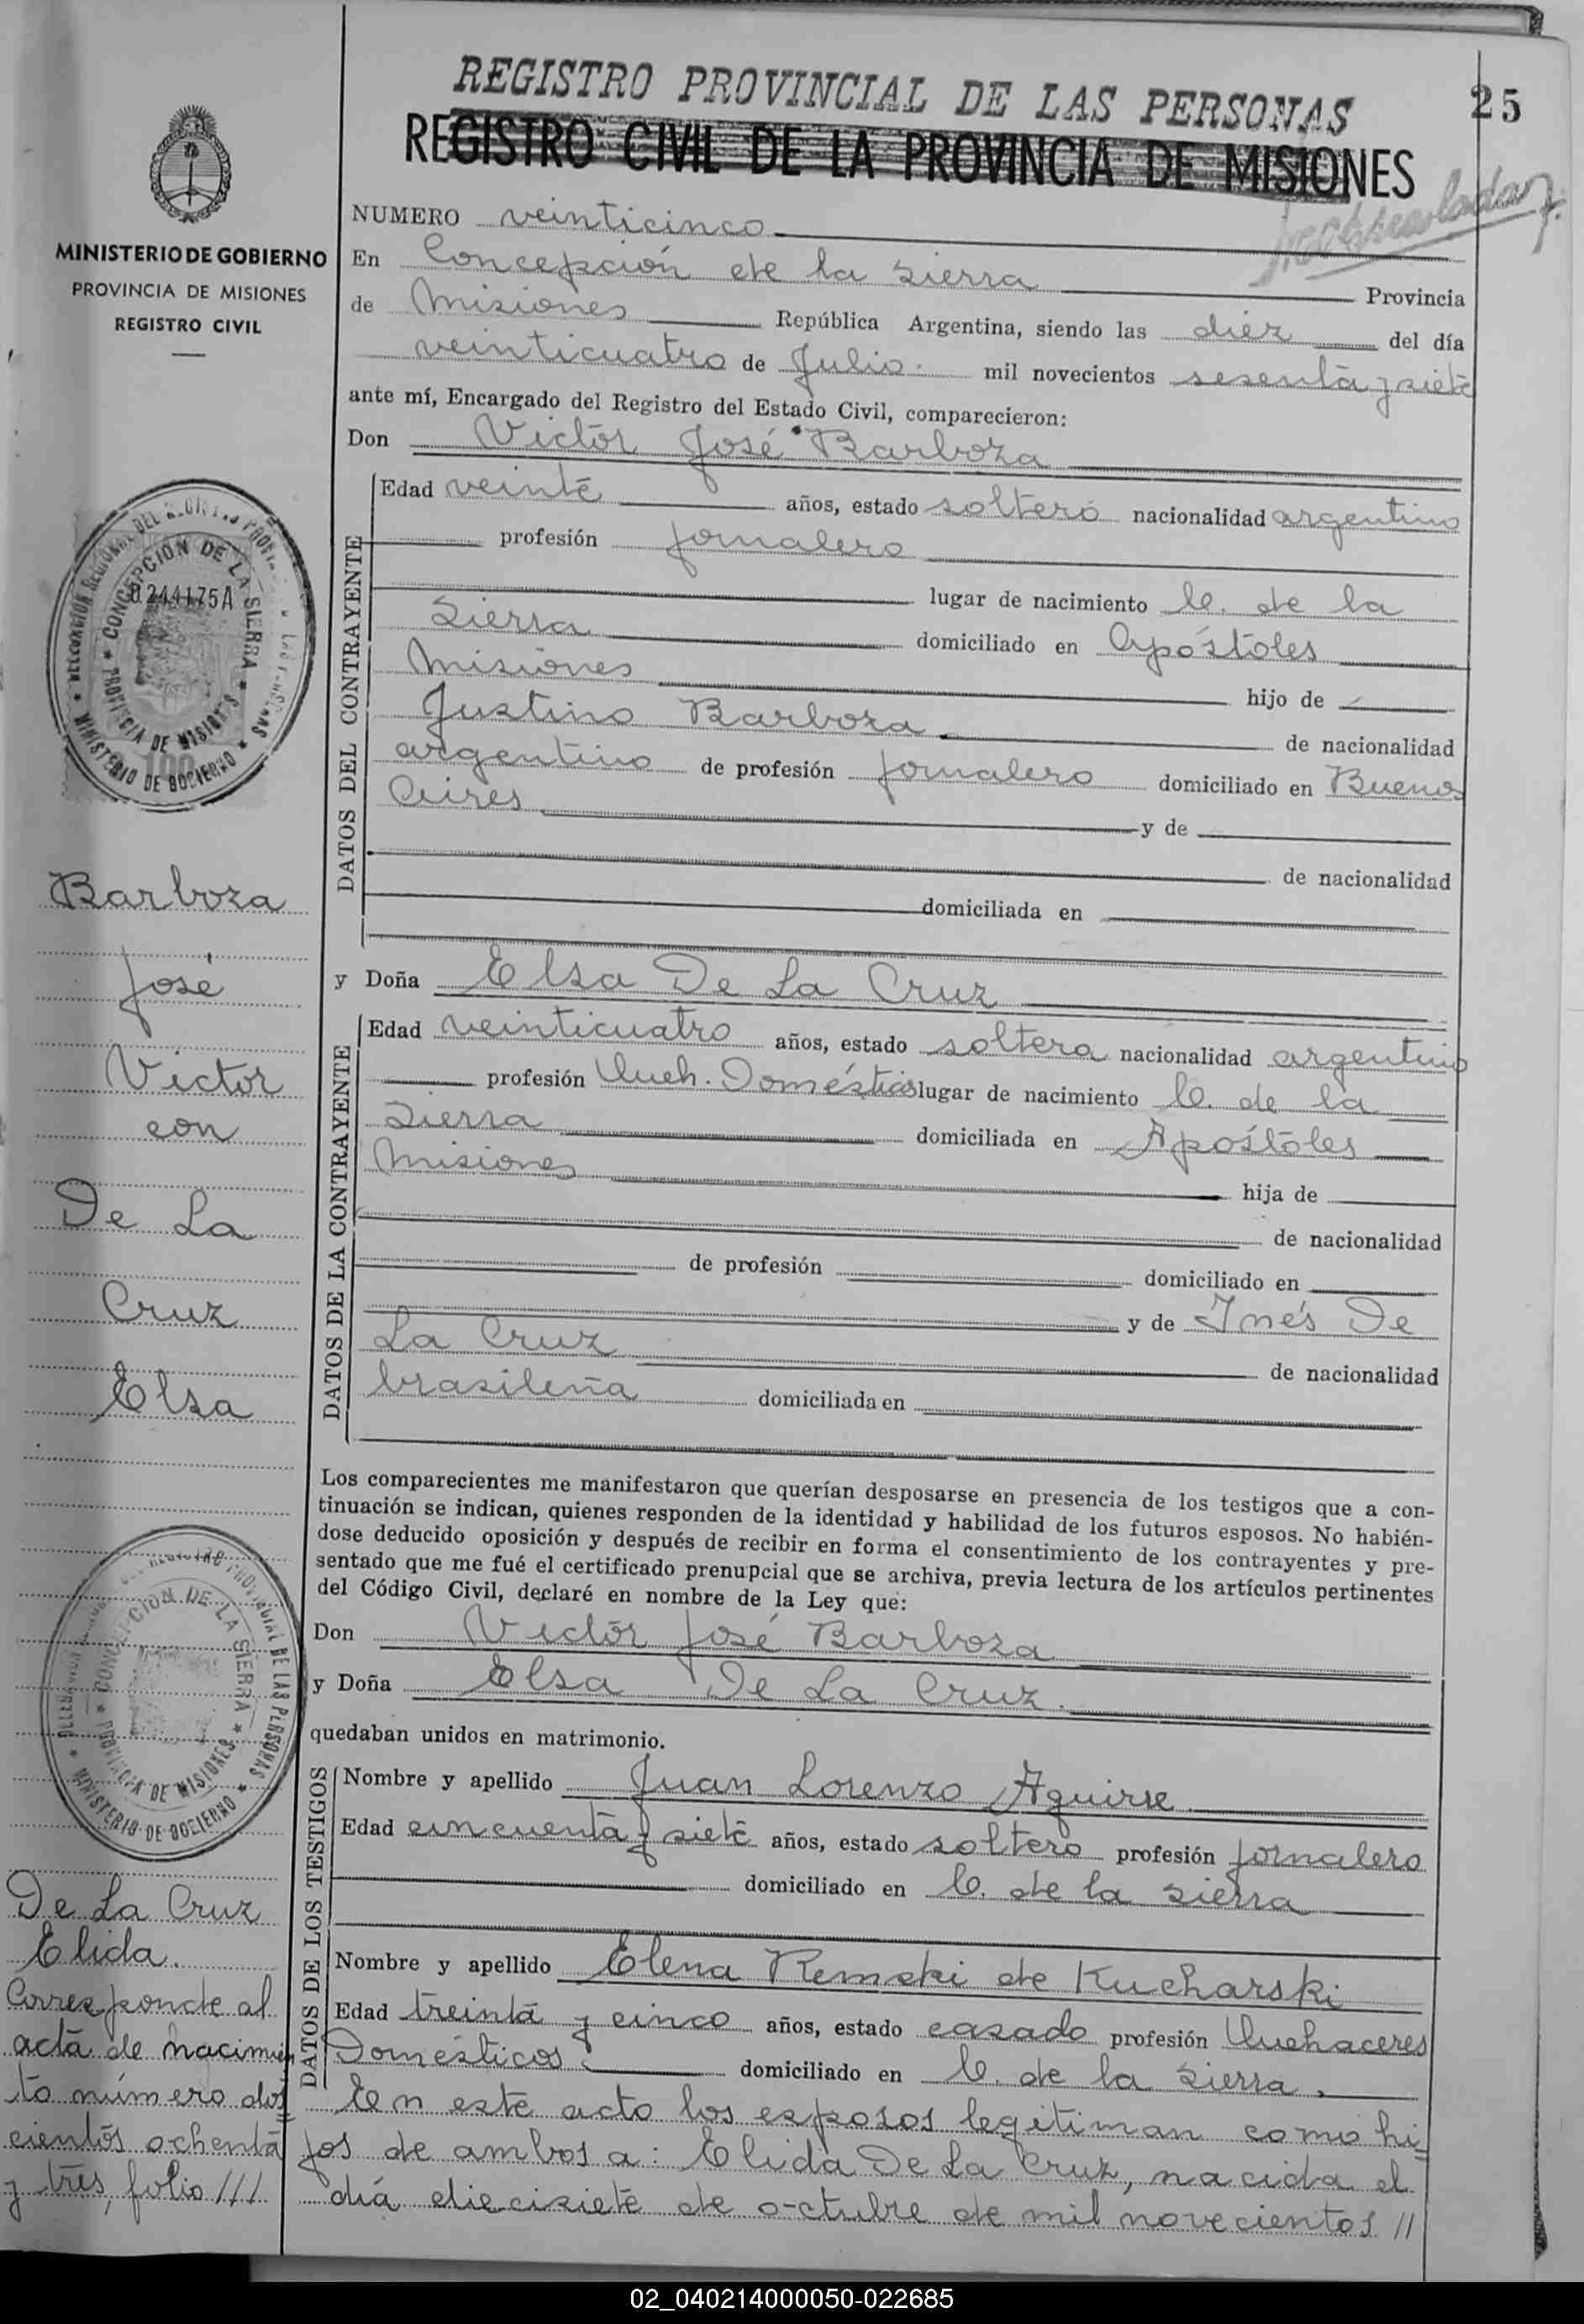 REGISTRO PROVINCIAL DE LAS PERSONAS
25
REGISTRO CIVIL DE LA PROVINCIA DE MISIONES
MINISTERIO DE GOBIERNO
PROVINCIA DE MISIONES
REGISTRO CIVIL
NUMERO veinticinco
En Concepción de la Sierra Provincia
de Misiones República Argentina, siendo las diez del día
veinticuatro de Julio mil novecientos sesenta y siete
ante mí, Encargado del Registro del Estado Civil, comparecieron:
Don Victor José Barboza
DATOS DEL CONTRAYENTE
Edad veinte años, estado soltero nacionalidad argentino
profesión Jornalero
lugar de nacimiento C. de la
Sierra domiciliado en Apóstoles
Misiones hijo de
Justino Barboza de nacionalidad
argentino de profesión Jornalero domiciliado en Buenos
Aires y de
de nacionalidad
domiciliada en
y Doña Elsa De La Cruz
DATOS DE LA CONTRAYENTE
Edad veinticuatro años, estado soltera nacionalidad argentino
profesión Queh. Domésticos lugar de nacimiento C. de la
Sierra domiciliada en Apóstoles
Misiones hija de
de nacionalidad
de profesión domiciliado en
y de Inés De
La Cruz de nacionalidad
brasileña domiciliada en
Los comparecientes me manifestaron que querían desposarse en presencia de los testigos que a con-
tinuación se indican, quienes responden de la identidad y habilidad de los futuros esposos. No habién-
dose deducido oposición y después de recibir en forma el consentimiento de los contrayentes y pre-
sentado que me fué el certificado prenupcial que se archiva, previa lectura de los artículos pertinentes
del Código Civil, declaré en nombre de la Ley que:
Don Victor José Barboza
y Doña Elsa De La Cruz
quedaban unidos en matrimonio.
DATOS DE LOS TESTIGOS
Nombre y apellido Juan Lorenzo Aguirre
Edad cincuenta y siete años, estado soltero profesión Jornalero
domiciliado en C. de la Sierra
Nombre y apellido Elena Remski de Kucharski
Edad treinta y cinco años, estado casado profesión Quehaceres
Domésticos domiciliado en C. de la Sierra.
En este acto los esposos legitiman como hi=
jos de ambos a: Elida De La Cruz, nacida el
día diecisiete de octubre de mil novecientos //
0244175A
CONCEPCION DE LA SIERRA
PROVINCIA DE MISIONES
MINISTERIO DE GOBIERNO
100
Barboza
José
Victor
con
De La
Cruz
Elsa
REGISTRO PROVINCIAL DE LAS PERSONAS
CONCEPCION DE LA SIERRA
PROVINCIA DE MISIONES
MINISTERIO DE GOBIERNO
De La Cruz
Elida.
Corresponde al
acta de nacimien
to número dos=
cientos ochenta
y tres, folio ///
02_040214000050-022685